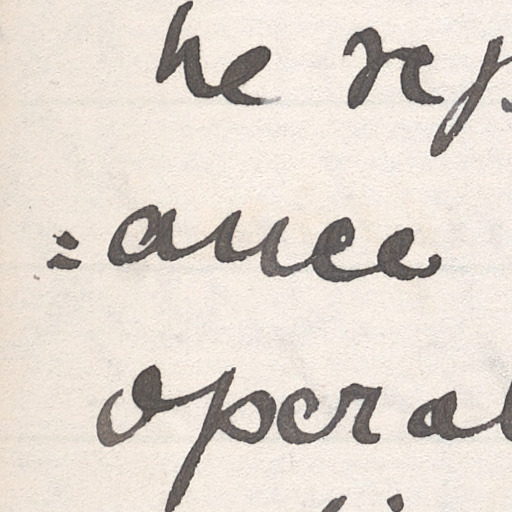 he rep
=ance
operat